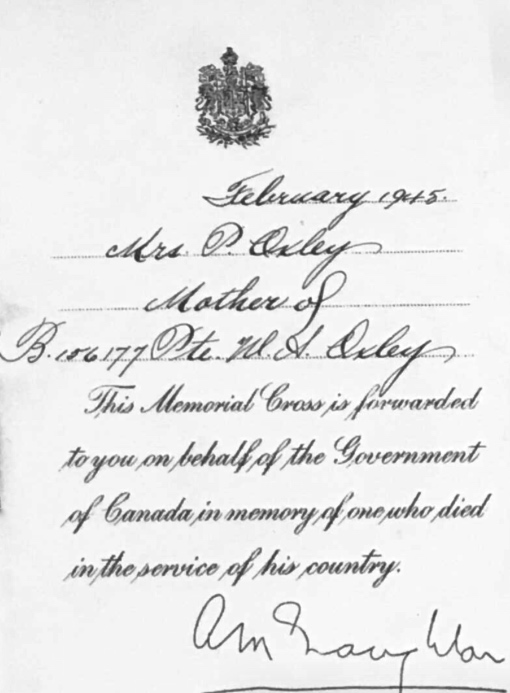 February 1945.
Mrs. P. Oxley
Mother of
B.156177 Pte. W. A. Oxley
This Memorial Cross is forwarded
to you on behalf of the Government
of Canada in memory of one who died
in the service of his country.